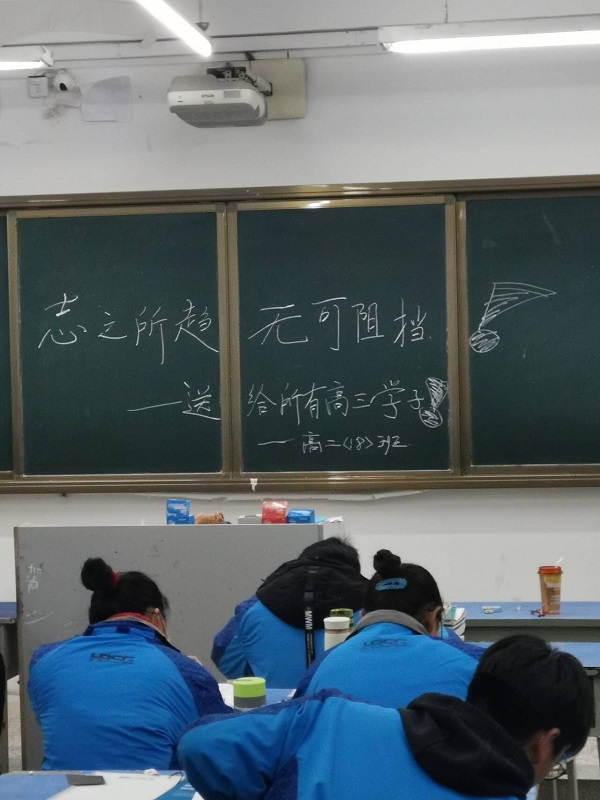 志之所趋 无可阻挡!
——送给所有高三学子!
——高二<18>班
EPSON
MWM